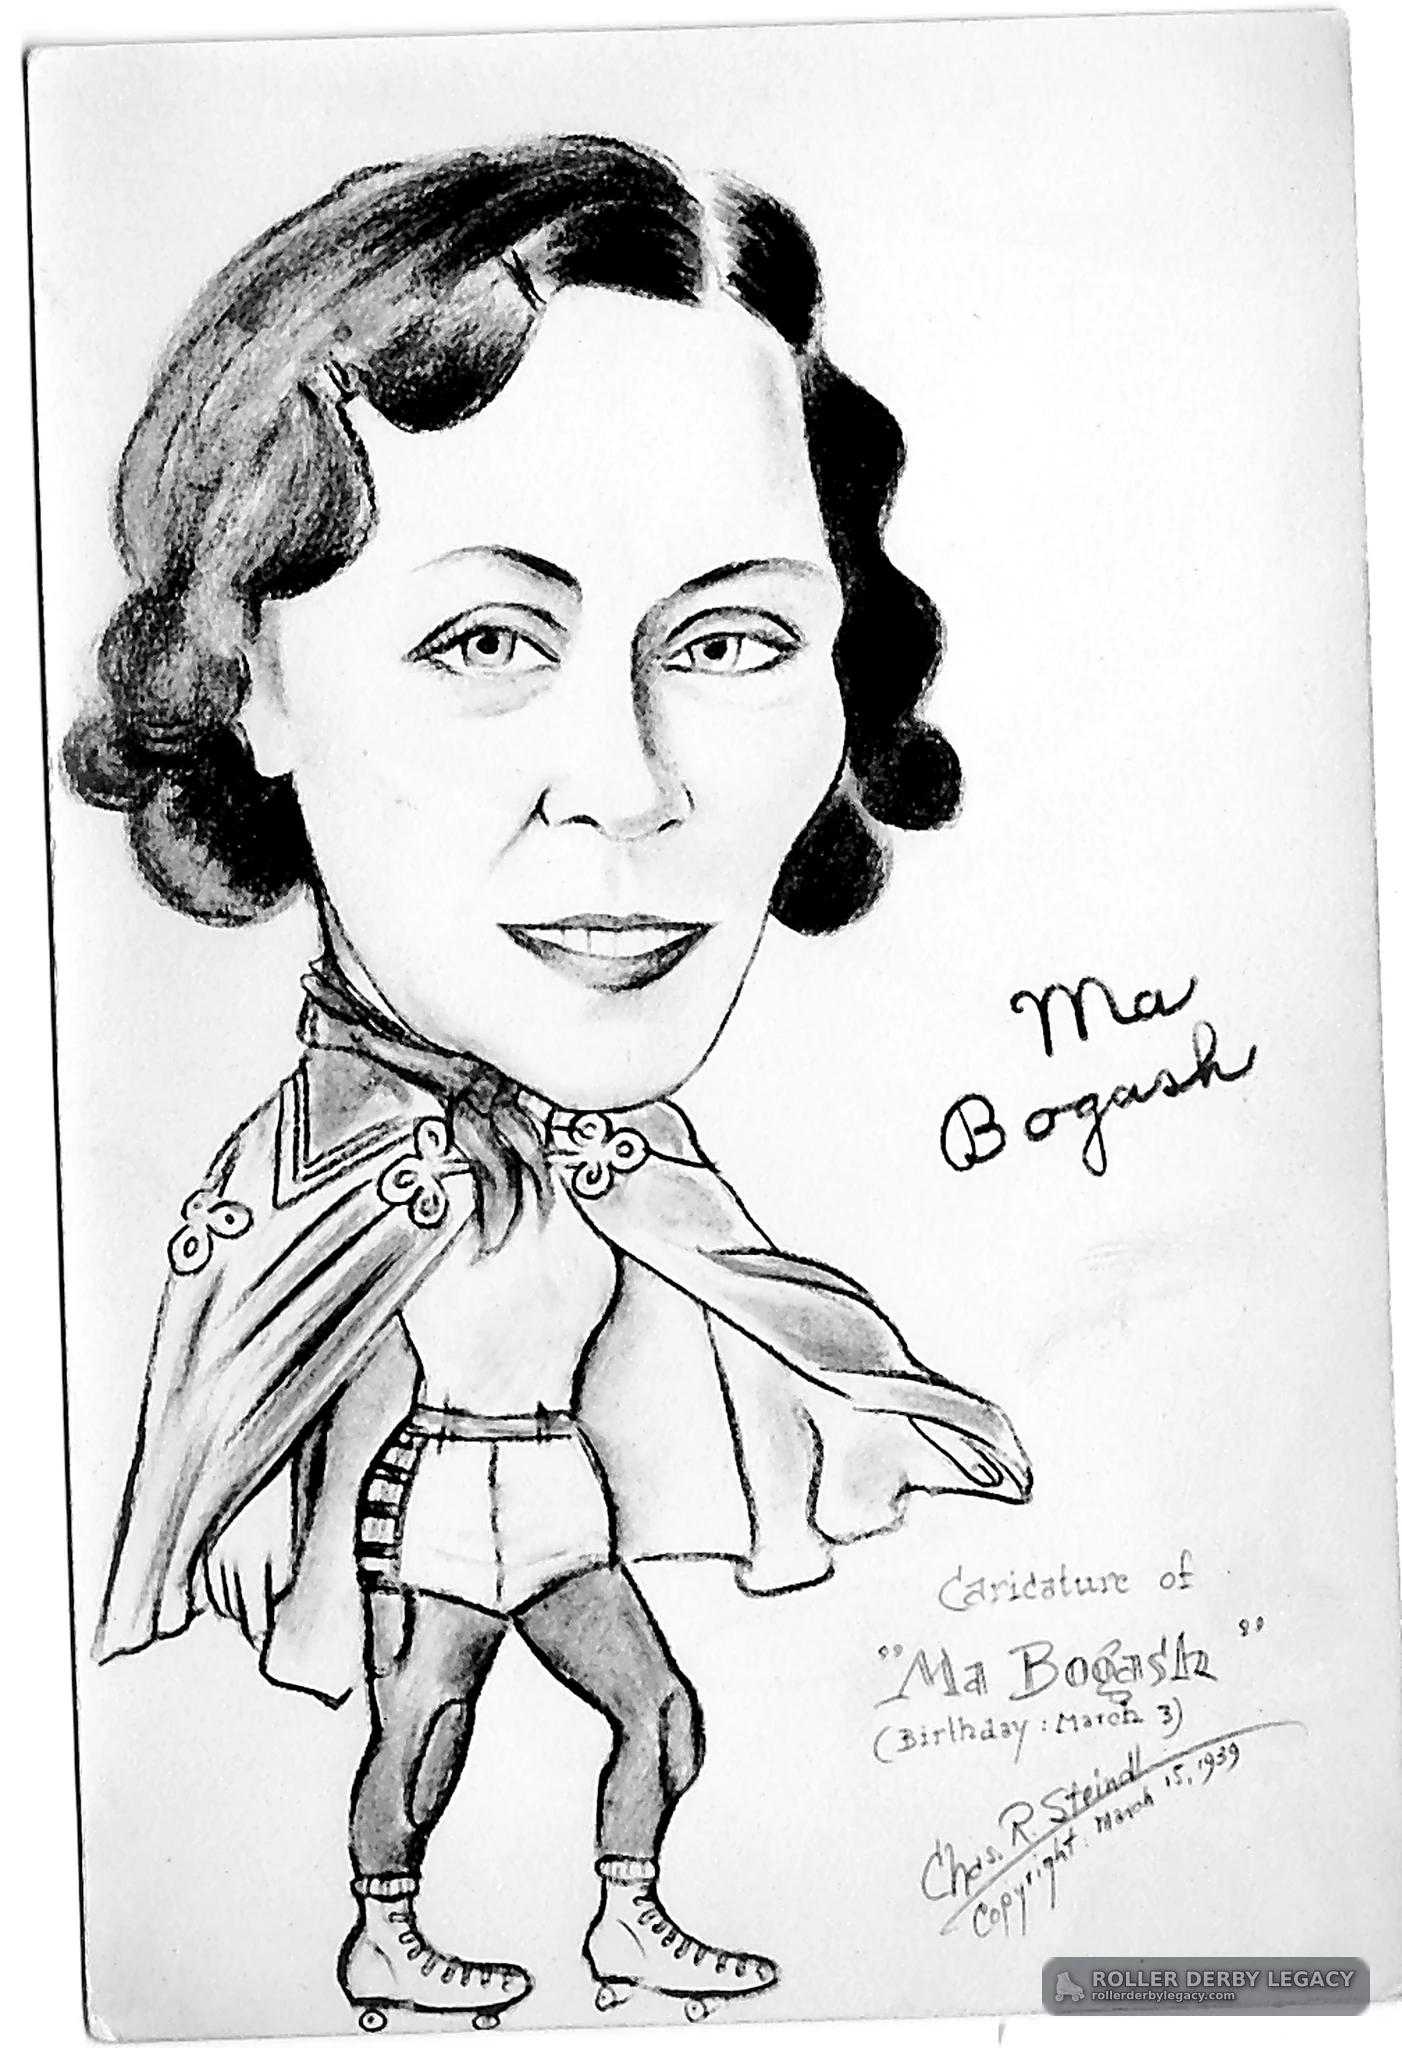 Ma
Bogash
Caricature of
"Ma Bogash"
(Birthday: March 3)
Chas. R. Steindl
Copyright: March 15, 1939
ROLLER DERBY LEGACY
rollerderbylegacy.com